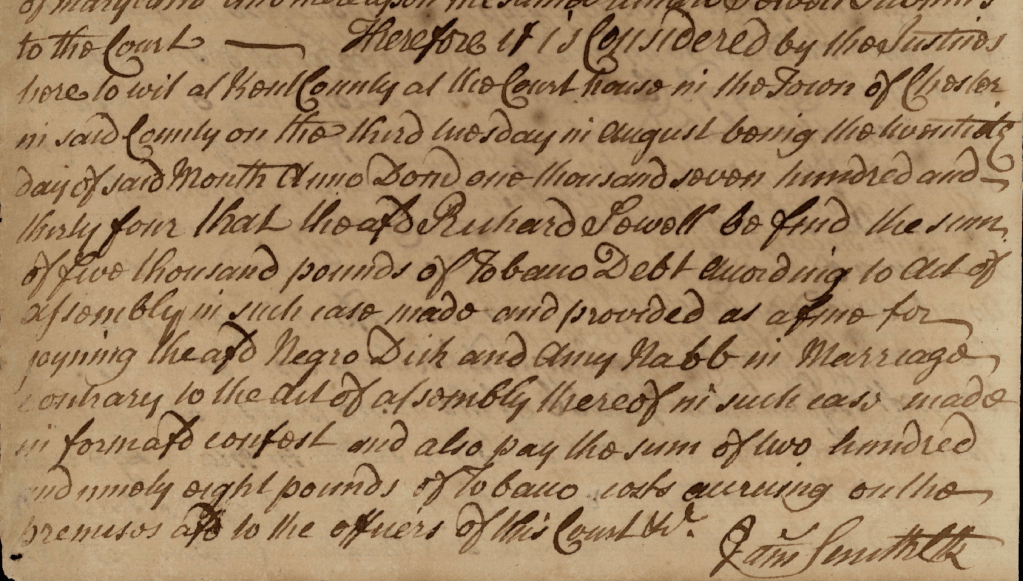 of maryland and
to the Court — Therefore it is Considered by the Justices
here to wit at Kent County at the Court house in the Town of Chester
in said County on the third tuesday in August being the twentieth
day of said Month Anno Dond one thousand seven hundred and
thirty four that the afd Richard Sewell be find the sum
of five thousand pounds of Tobacco Debt according to Act of
assembly in such case made and provided as a fine for
joyning the afd Negro Dick and Amy Nabb in Marriage
contrary to the Act of assembly thereof in such case made
in form afd confest and also pay the sum of two hundred
and ninety eight pounds of Tobacco costs accruing on the
premises afd to the officers of this Court &c.
Jam Smith Clk